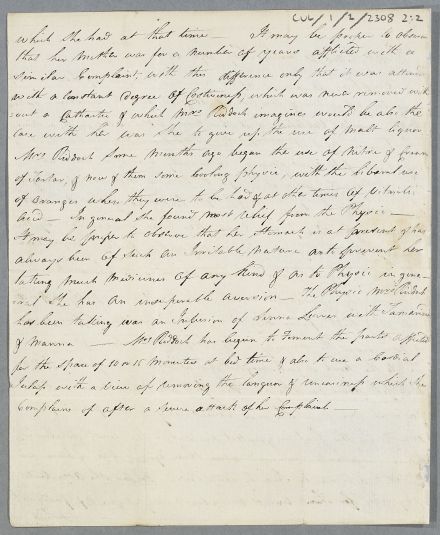 CUL/1/2/2308 2:2
which she had at that time — It may be proper to observe
that her Mother was for a number of years afflicted with a
similar Complaint, with this difference only that it was attended
with a constant degree of Costiveness, which was never removed with
out a Cathartic & which Mrs Riddoch imagines would be also the
case with her was she to give up the use of malt liquor
Mrs Riddoch some months ago began the use of Nitre & Cream
of Tartar, & now & then some cooling physic, with the liberal use
of Oranges when they were to be had & at other times of Vitriolic
Acid — In general she found most relief from the Physic —
It may be proper to observe that her Stomach is at present & has
always been of such an Irritable Nature as to prevent her
taking much Medicines of any kind & as to Physic in gene
ral she has an insuperable aversion — The Physic Mrs Riddoch
has been taking was an Infusion of Senna Leaves with Tamarinds
& Manna — Mrs Riddoch has begun to foment the parts affected
for the space of 10 or 15 minutes at bed time & also to use a Cordial
Julap with a view of removing the languor & uneasiness which she
complains of after a severe attack of her Complaint —